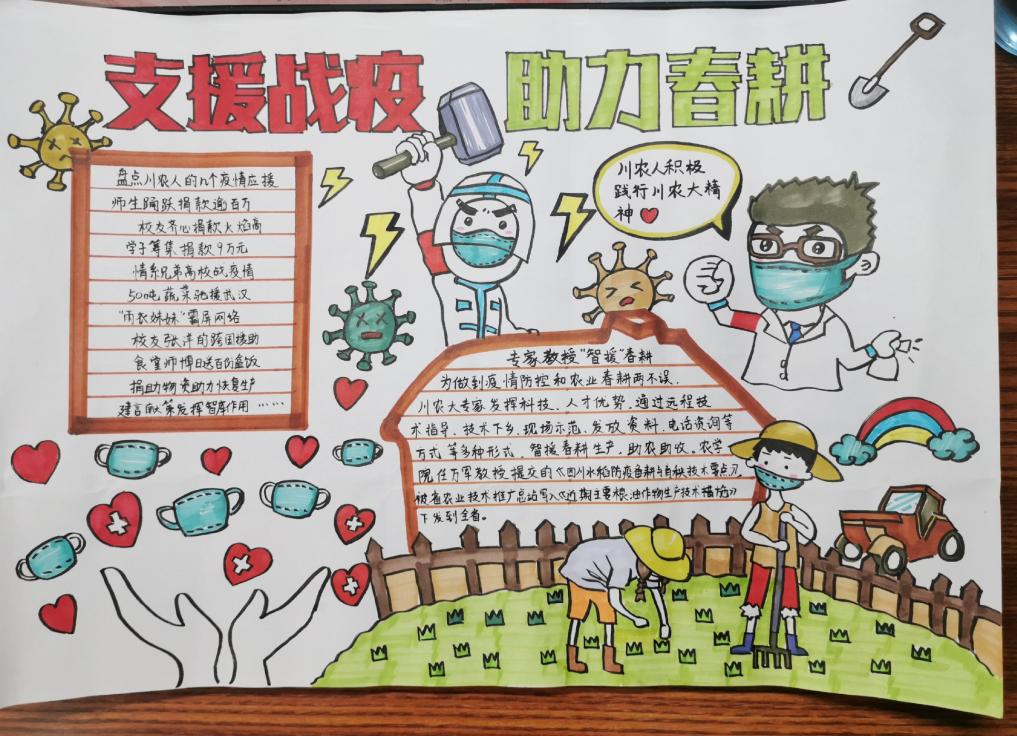 支援战疫 助力春耕
盘点川农人的几个疫情应援
师生踊跃捐款逾百万
校友齐心捐款火焰高
学子筹集捐款9万元
情系兄弟高校战疫情
500吨蔬菜驰援武汉
"雨衣妹妹"霸屏网络
校友张洋的跨国援助
食堂师傅日送百份盒饭
捐助物资助力恢复生产
建言献策发挥智库作用……
川农人积极
践行川农大精
神
专家教授"智援"春耕
为做到疫情防控和农业春耕两不误,
川农大专家发挥科技、人才优势,通过远程技
术指导、技术下乡、现场示范、发放资料、电话咨询等
方式等多种形式,智援春耕生产,助农助收。农学
院任万军教授提交的《四川水稻防疫备耕与育秧技术要点》,
被省农业技术推广总站写入《近期主要粮油作物生产技术措施》
下发到全省。